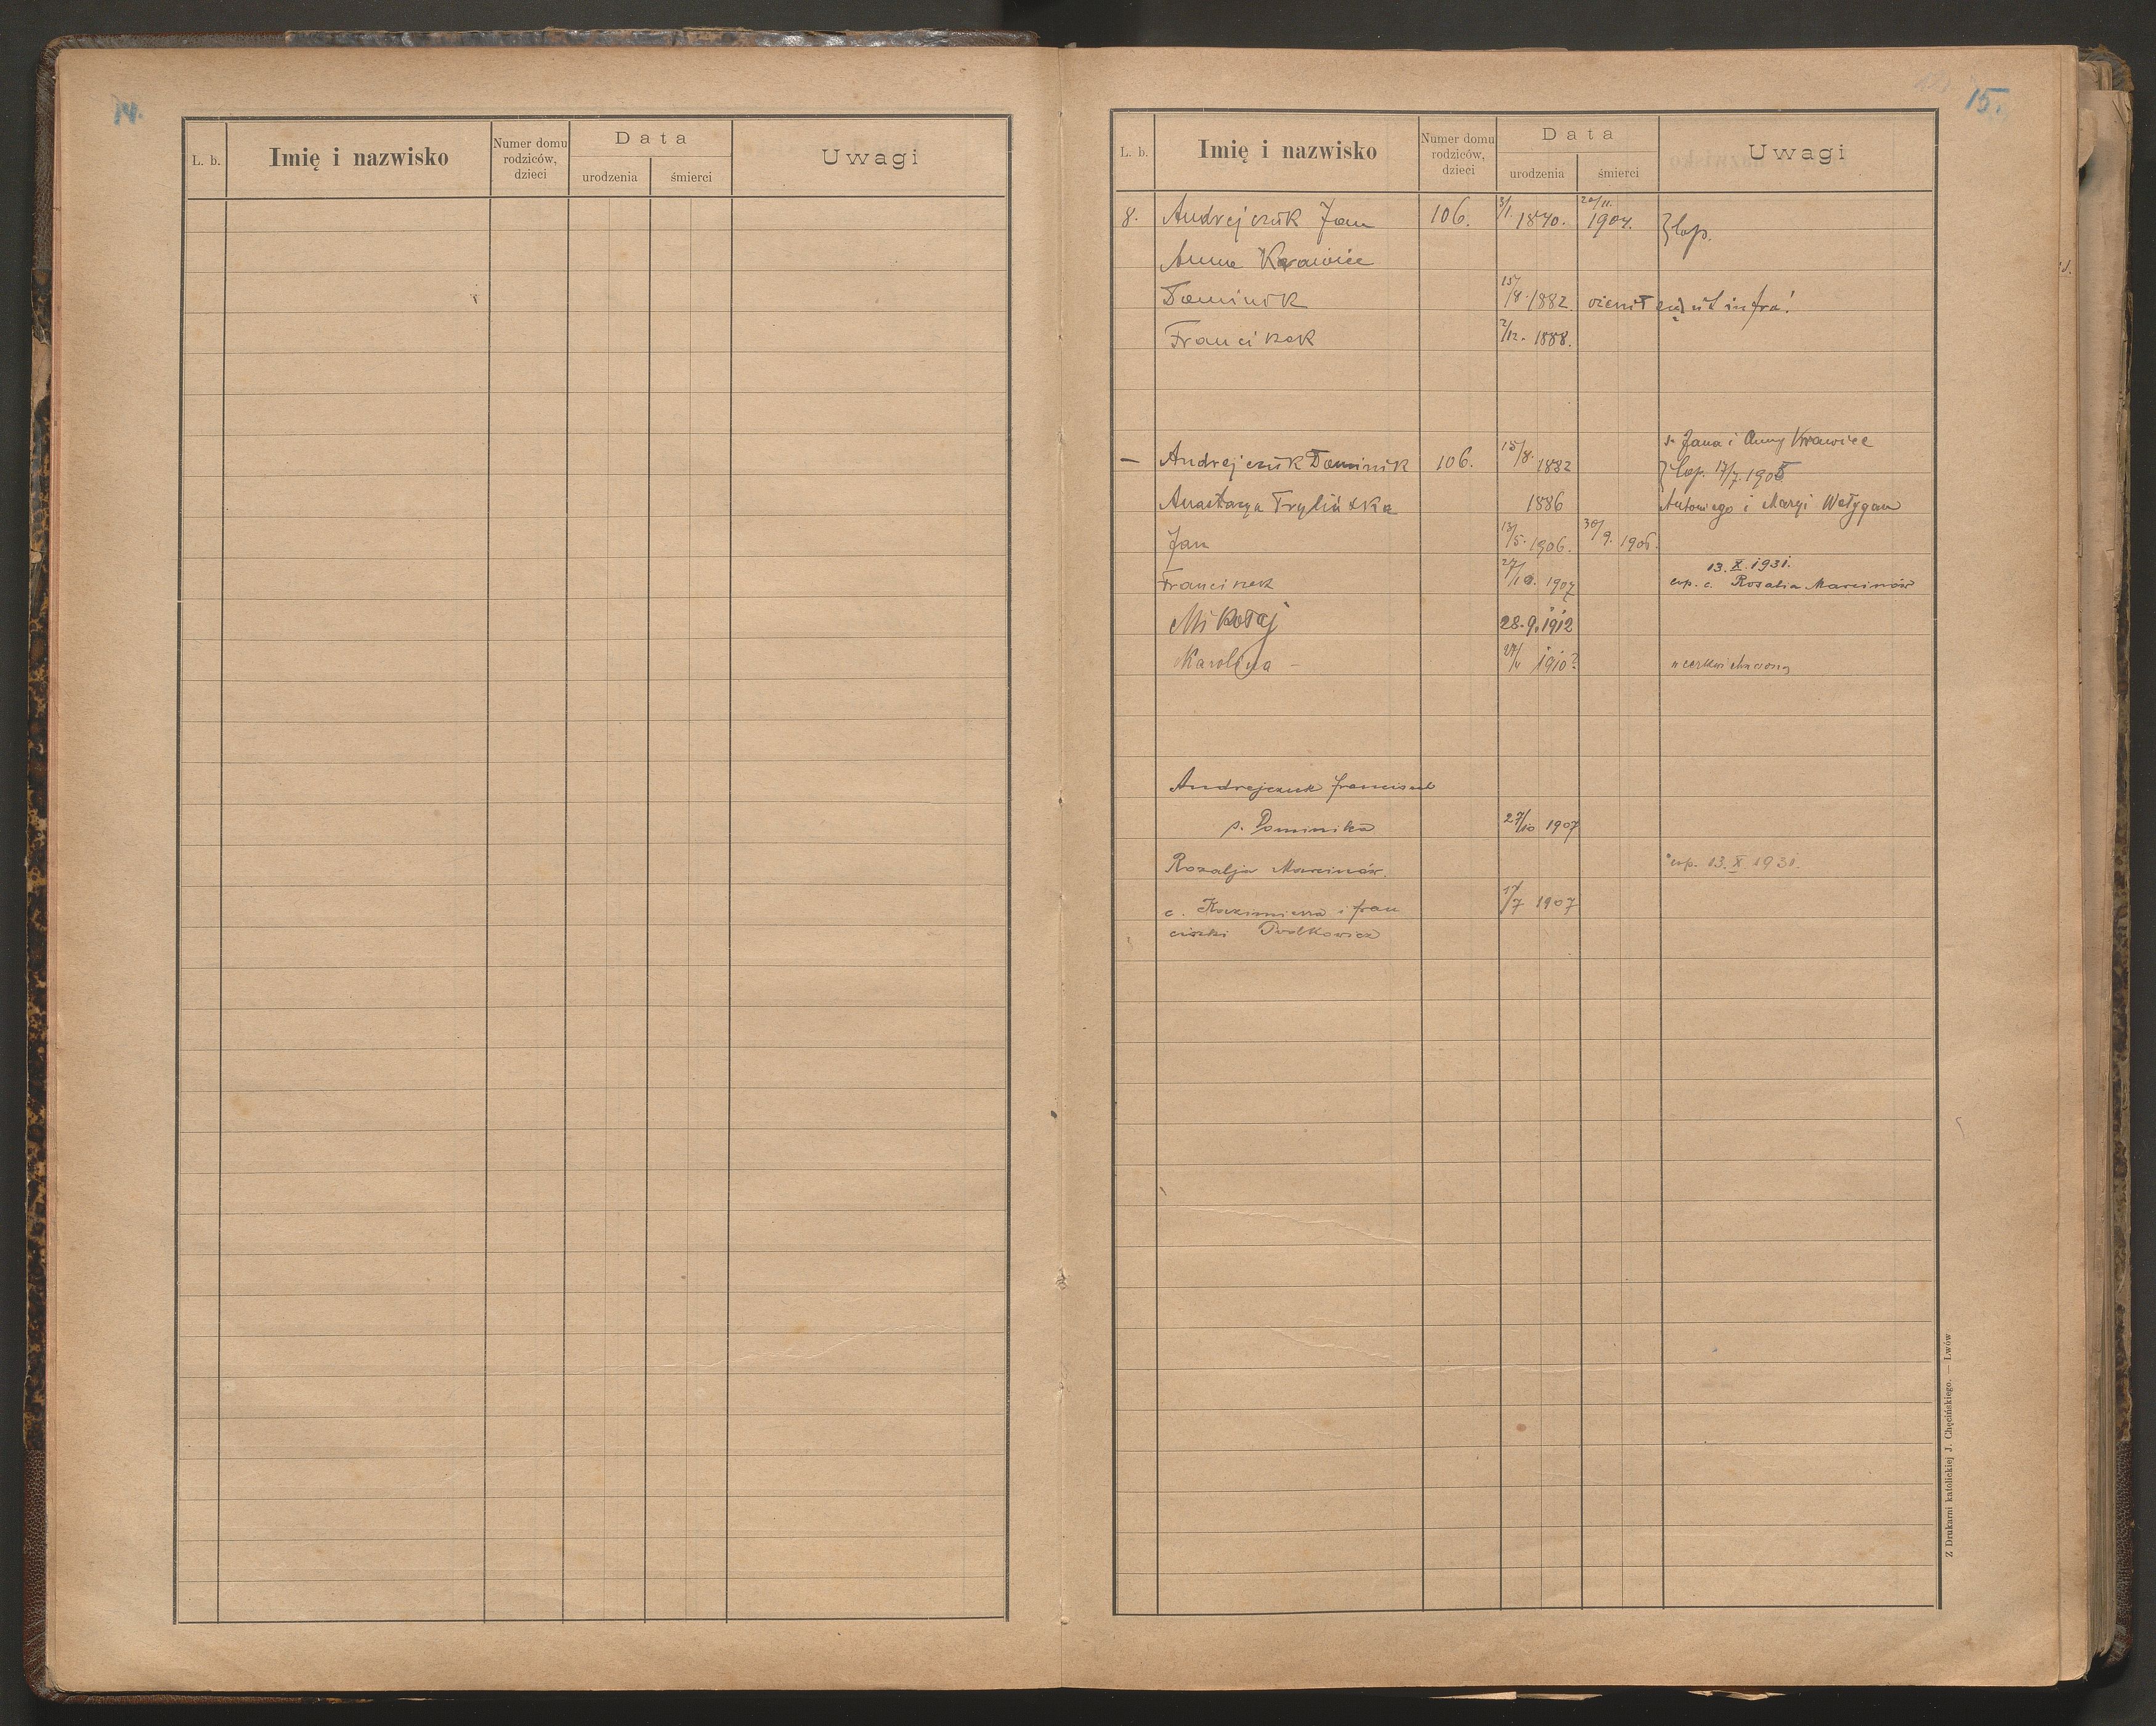 14.
L. b. Imię i nazwisko Numer domu rodziców, dzieci Data urodzenia śmierci Uwagi
15.
L. b. Imię i nazwisko Numer domu rodziców, dzieci Data urodzenia śmierci Uwagi
8. Andrejczuk Jan 106. 3/1. 1840. 20/11. 1904. } Cop.
Anna Krawiec
Dominik 15/8. 1882. ożenił się ut infra!
Franciszek 2/12. 1888.
s. Jana i Anny Krawiec
— Andrejczuk Dominik 106. 15/8. 1882 } Cop. 17/7. 1905
Anastazya Trylińska 1886 Antoniego i Maryi Wełygan
Jan 13/5. 1906. 30/9. 1906.
13. X. 1931.
Franciszek 27/10. 1907 cop. c. Rozalia Marcinów
Mikołaj 28.9.1912
Karolina – 1910? w cerkwi chrzczona
Andrejczuk Franciszek
s. Dominika 27/10 1907
Rozalja Marcinów. cop. 13. X 1931.
c. Kazimierza i Fran 17/7 1907
ciszki
Z Drukarni katolickiej J. Chęcińskiego. — Lwów